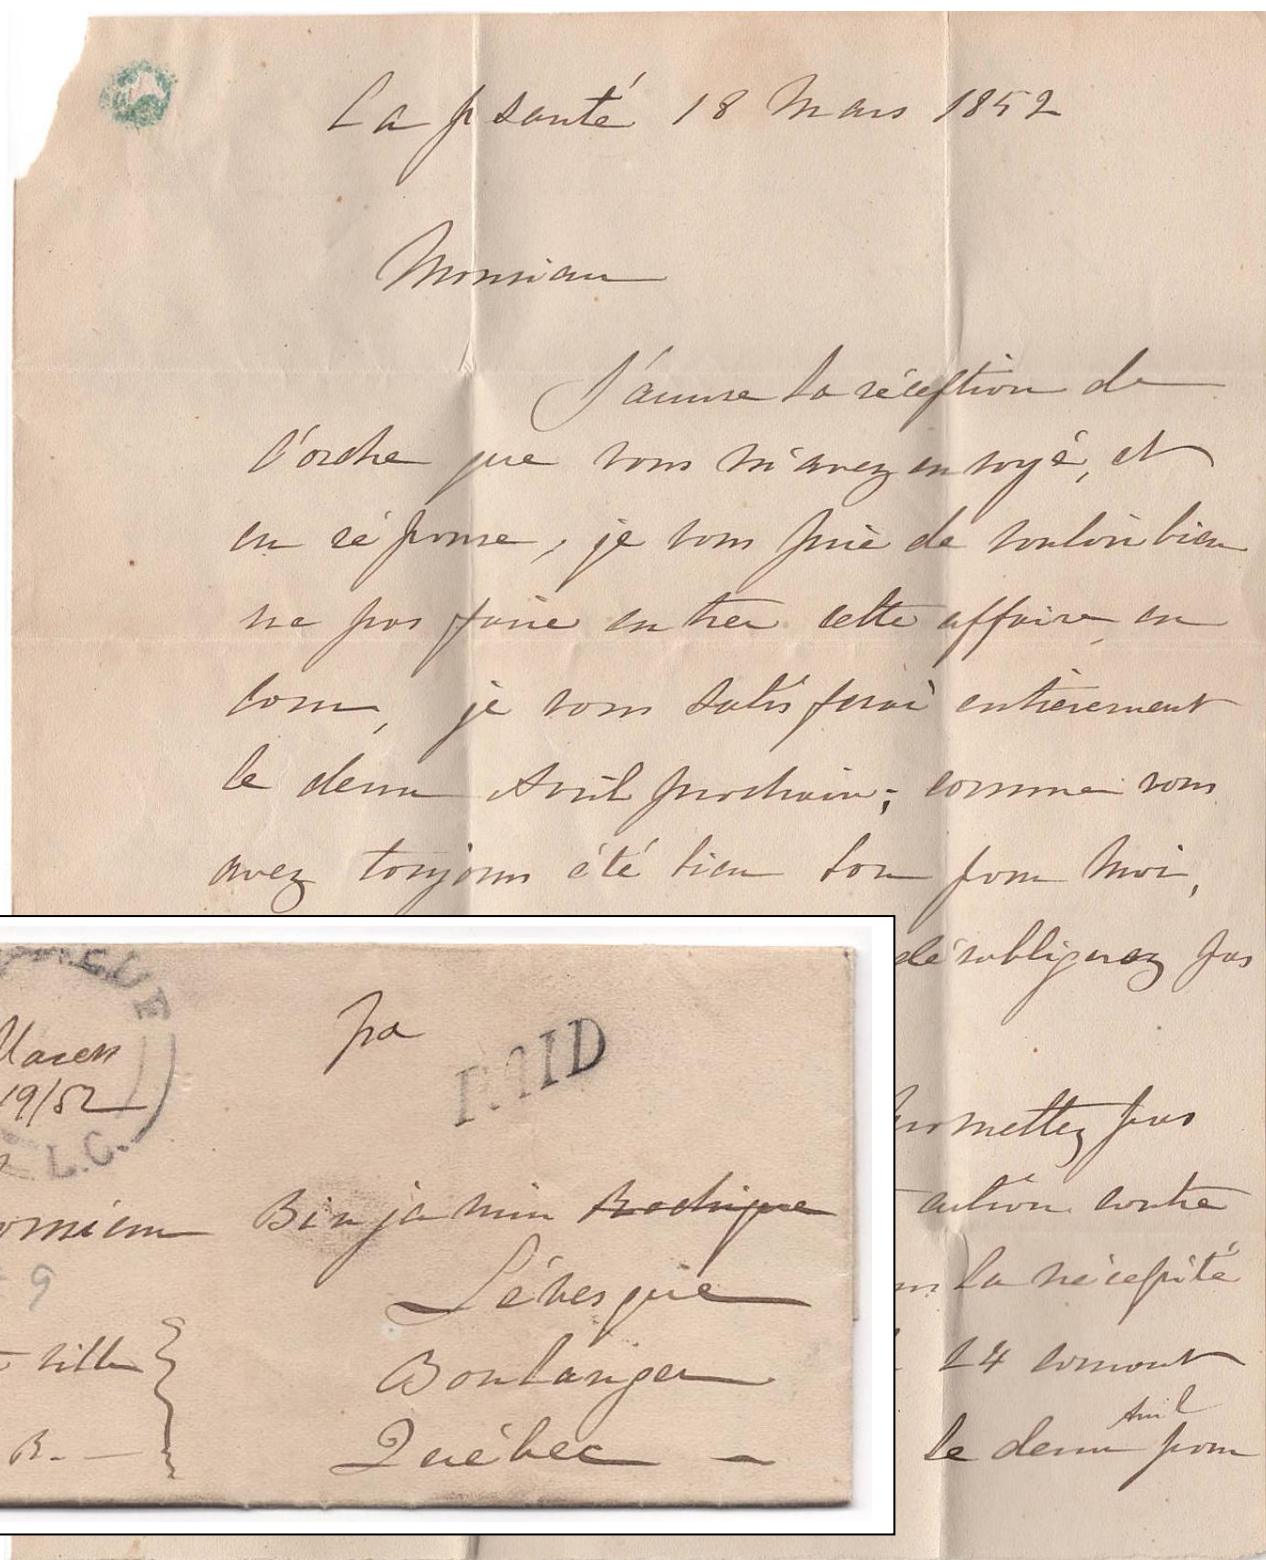 La psanté 18 Mars 1852
Monsieur
J'accuse la réception de
l'ordre que vous m'avez envoyé, et
en réponse, je vous prie de vouloir bien
ne pas faire entrer cette affaire en
cour, je vous satisferai entièrement
le deux Avril prochain; comme vous
avez toujours été bien bon pour moi,
désobligerez pas
promettez pas
action contre
la nécessité
24 courant
Avril
le deux pour
March
19/52
L.C.
pa
PAID
Binjamin Rodrigue
9
Lévesque
ville
Boulanger
B.
Québec